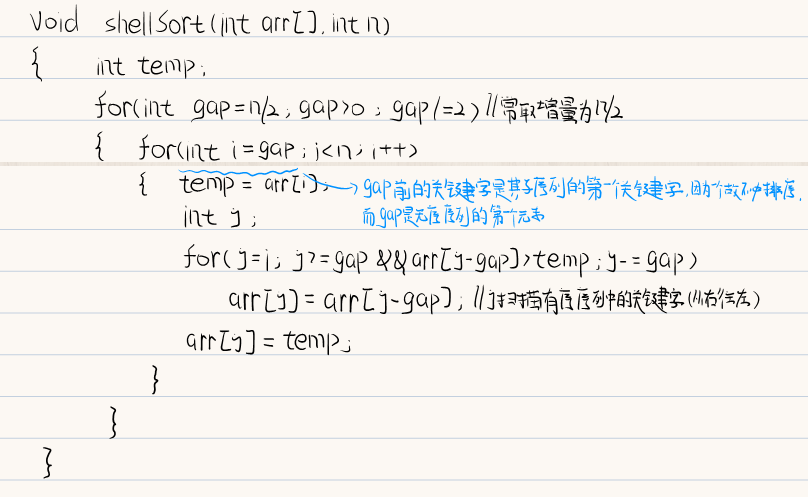 void shellSort(int arr[], int n)
{ int temp;
for(int gap=n/2; gap>0; gap/=2) //常取增量为n/2
{ for(int i=gap; i<n; i++)
{ temp = arr[i]; → gap前的关键字是其子序列的第一个关键字,因此做不为排序,
int j; 而gap是无序序列的第一个元素
for(j=i; j>=gap &&arr[j-gap]>temp; j-=gap)
arr[j] = arr[j-gap]; //j扫描有序序列中的关键字(从右往左)
arr[j] = temp;
}
}
}